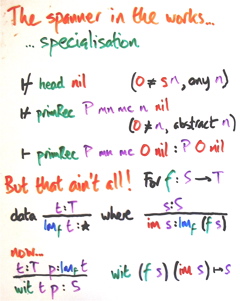 The spanner in the works...
... specialisation
⊬ head nil (0 ≠ s n, any n)
⊬ primRec P mn me n nil
(0 ≠ n, abstract n)
⊢ primRec P mn mc 0 nil : P 0 nil
But that ain't all! For f : S → T
data t:T / Imf t : ★ where s:S / im s : Imf (f s)
now...
t:T p:Imf t / wit t p : S wit (f s) (im s) ↦ s